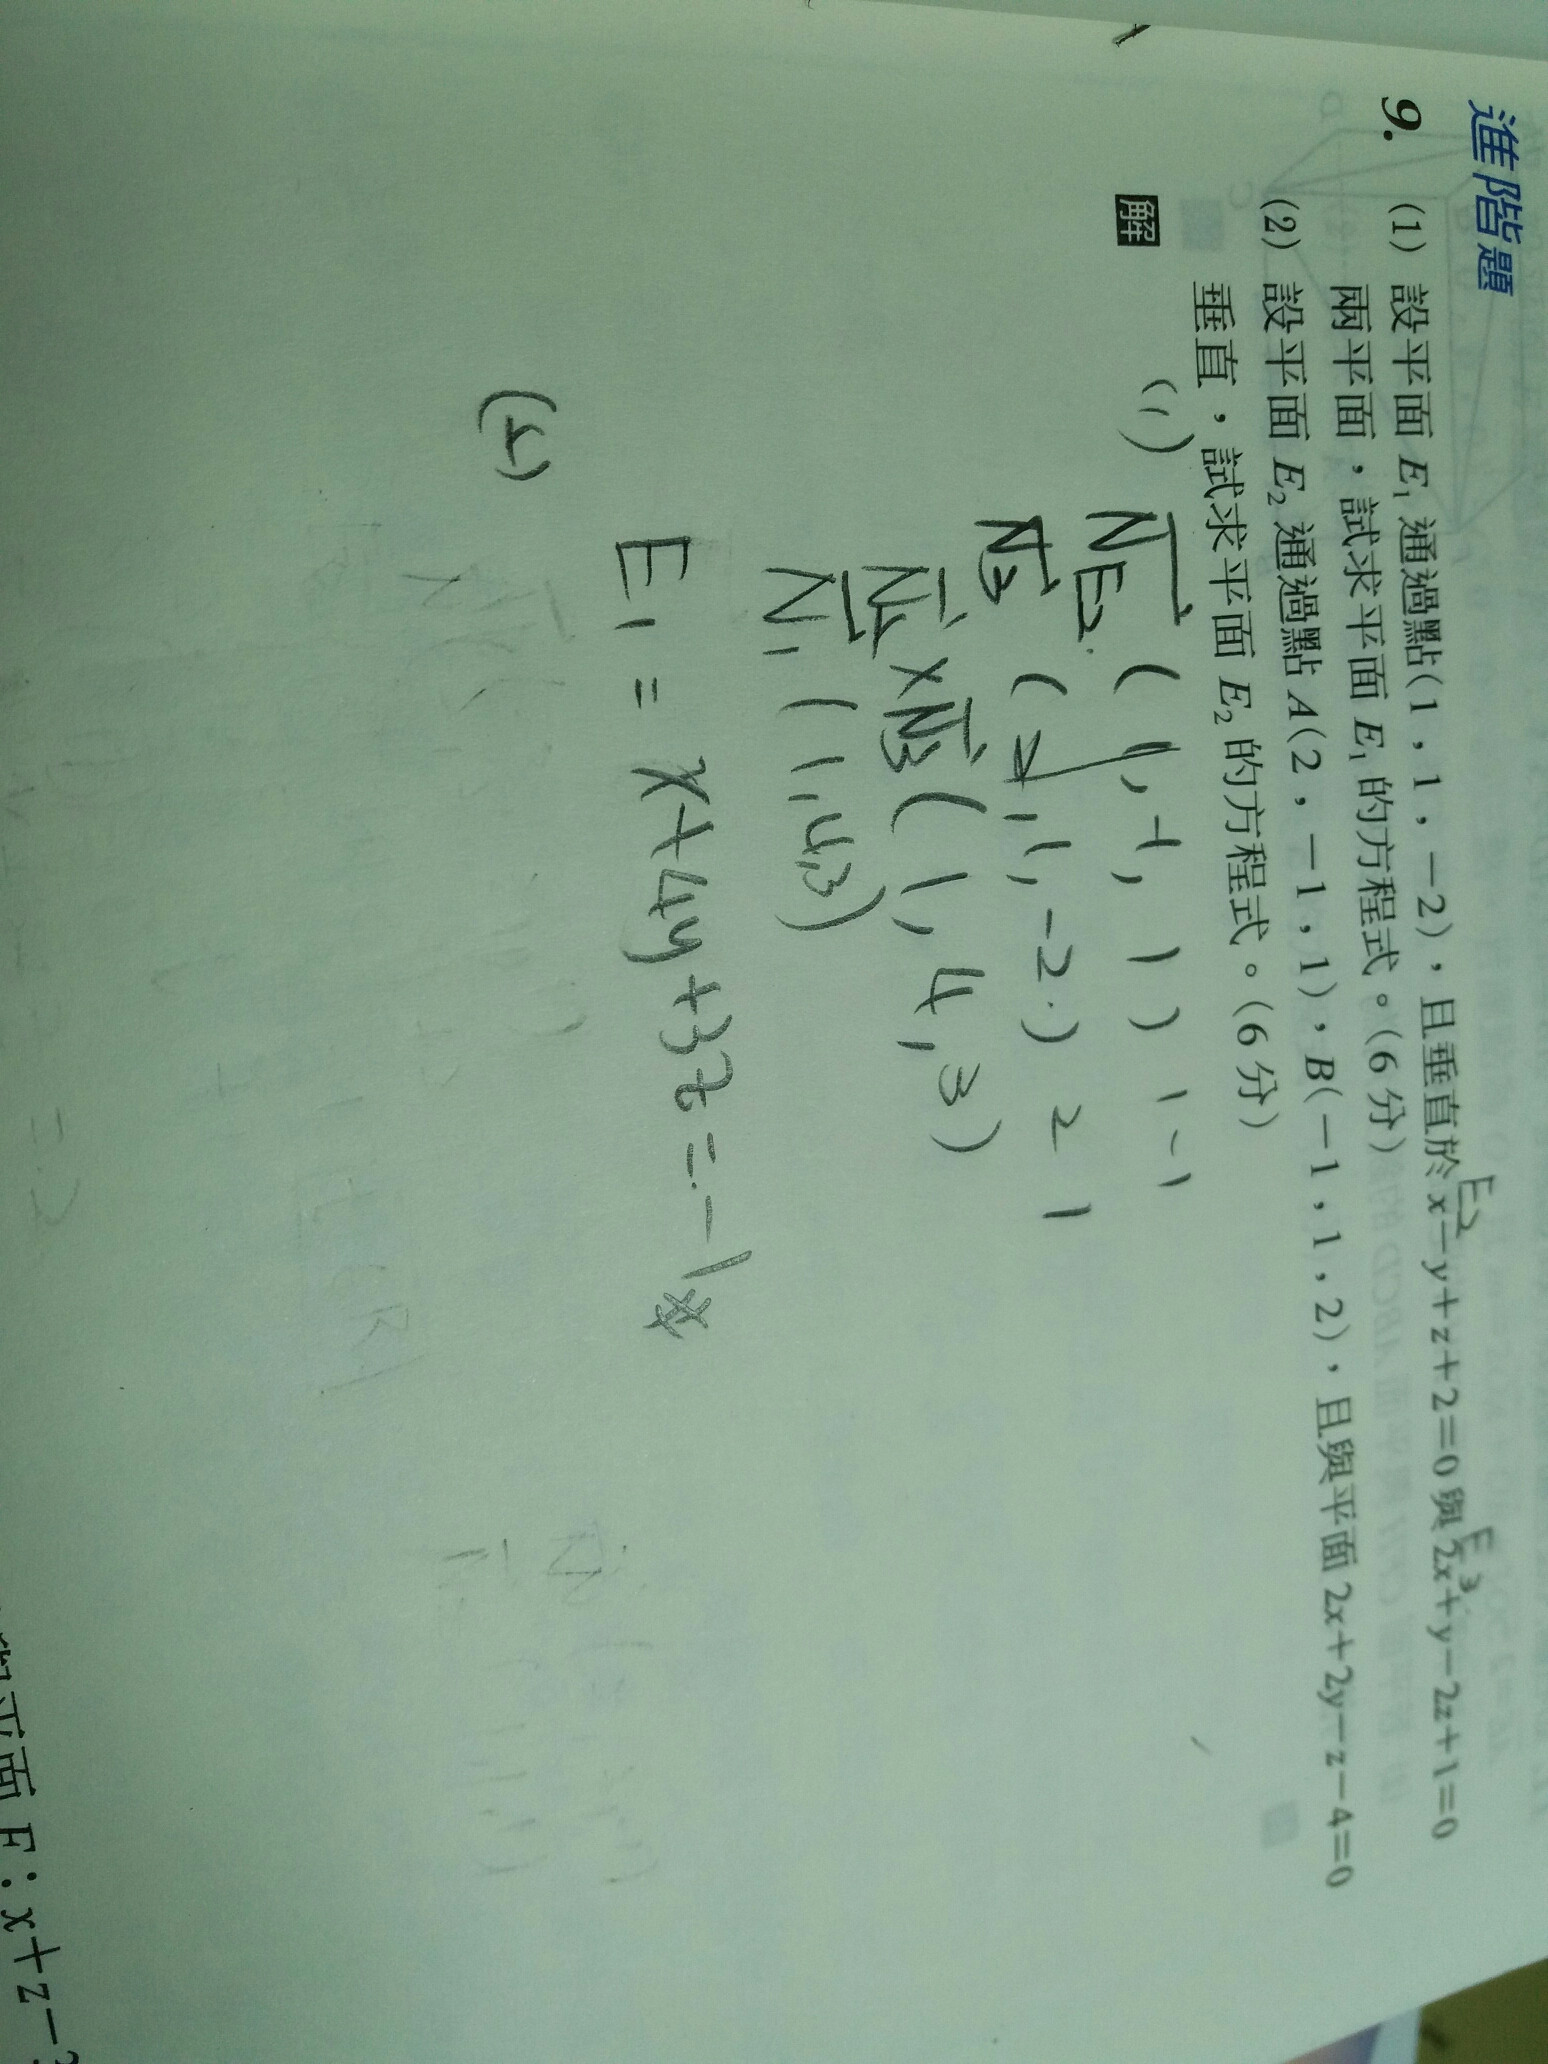 進階題
9. (1) 設平面 E₁ 通過點(1,1,-2),且垂直於 x-y+z+2=0 與 2x+y-2z+1=0
E2 E3
兩平面,試求平面 E₁ 的方程式。(6分)
(2) 設平面 E₂ 通過點 A(2,-1,1),B(-1,1,2),且與平面 2x+2y-z-4=0
垂直,試求平面 E₂ 的方程式。(6分)
解
(1) NE2 (1,-1,1) 1 -1
N3 (2,1,-2) 2 1
N2×N3 (1,4,3)
N1 (1,4,3)
E1 = x+4y+3z=-1
平面 E:x+z-